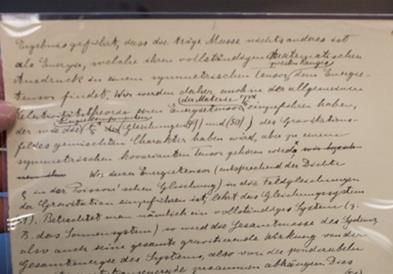 Ergebnis geführt, dass die träge Masse nichts anderes ist
als Energie, welche ihren vollständigen mathematischen
Ausdruck in einem symmetrischen Tensor zweiten Ranges, dem Energie-
tensor findet. Wir werden daher auch in der allgemeinen
Relativitätstheorie einen Energietensor der Materie einzuführen haben,
der wie die Energiekomponenten (Gleichungen und (50)) des Gravitations-
feldes gemischten Charakter haben wird, aber zu einem
symmetrischen kovarianten Tensor gehören wird
Wie dieser Energietensor (entsprechend der Dichte
in der Poisson'schen Gleichung) in die Feldgleichungen
der Gravitation einzuführen ist, lehrt das Gleichungssystem
(51). Betrachtet man nämlich ein vollständiges System (z.
B. das Sonnensystem) so wird die Gesamtmasse des Systems
also auch seine gesamte gravitierende Wirkung von der
Gesamtenergie des Systems, also von der ponderabeln
zusammen abhängen Dies